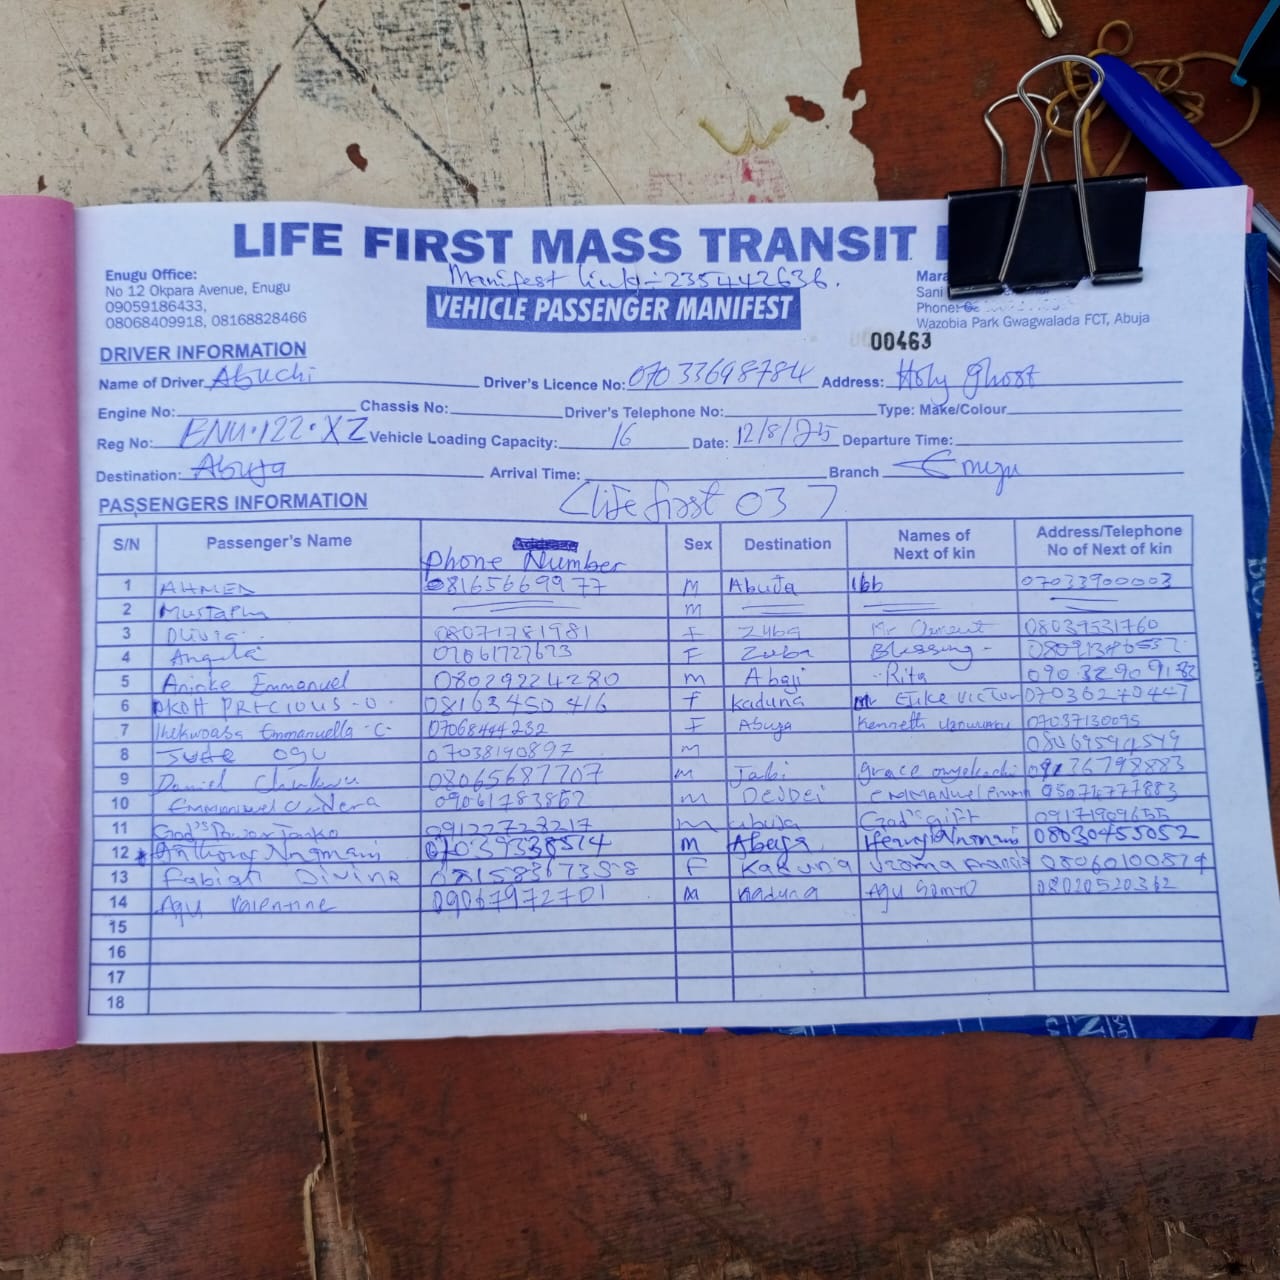 LIFE FIRST MASS TRANSIT
Manifest link:- 235442636.
VEHICLE PASSENGER MANIFEST
Enugu Office:
No 12 Okpara Avenue, Enugu
09059186433,
08068409918, 08168828466
Mara
Sani
Phone:
Wazobia Park Gwagwalada FCT, Abuja
00463
DRIVER INFORMATION
Name of Driver Abuchi Driver's Licence No: 07033698784 Address: Holy Ghost
Engine No: Chassis No: Driver's Telephone No: Type: Make/Colour
Reg No: ENU.122.XZ Vehicle Loading Capacity: 16 Date: 12/8/25 Departure Time:
Destination: Abuja Arrival Time: Branch Enugu
PASSENGERS INFORMATION Life first 037
S/N Passenger's Name Phone Number Sex Destination Names of Next of kin Address/Telephone No of Next of kin
1 AHMED 08165669977 M Abuja Ibb 07033900003
2 Mustapha M
3 Olivia 08071781981 F Zuba Mr Clement 08039531760
4 Angela 07061727673 F Zuba Blessing
5 Anioke Emmanuel 08029224280 m Abaji Rita 09032909182
6 OKOH PRECIOUS .O. 08163450416 f Kaduna Mr Ejike Victor 07036270447
7 Ihekwoaba Emmanuella .C. 07068444232 F Abuja Kenneth 07037130095
8 Jude Ogu 07038190897 m
9 Daniel Chukwu 08065687707 m Jabi grace onyekachi 09136798883
10 Emmanuel 09061783862 m Deidei Emmanuel
11 God's Power 09122728217 m abuja God's gift 09171909655
12 Anthony Nnamani 07039338514 M Abuja Henry Nnamani 08030455052
13 Fabian Divine F Kaduna Uzoma Francis 08060100879
14 Agu Valentine 09067972701 M Kaduna Agu 08020520362
15
16
17
18